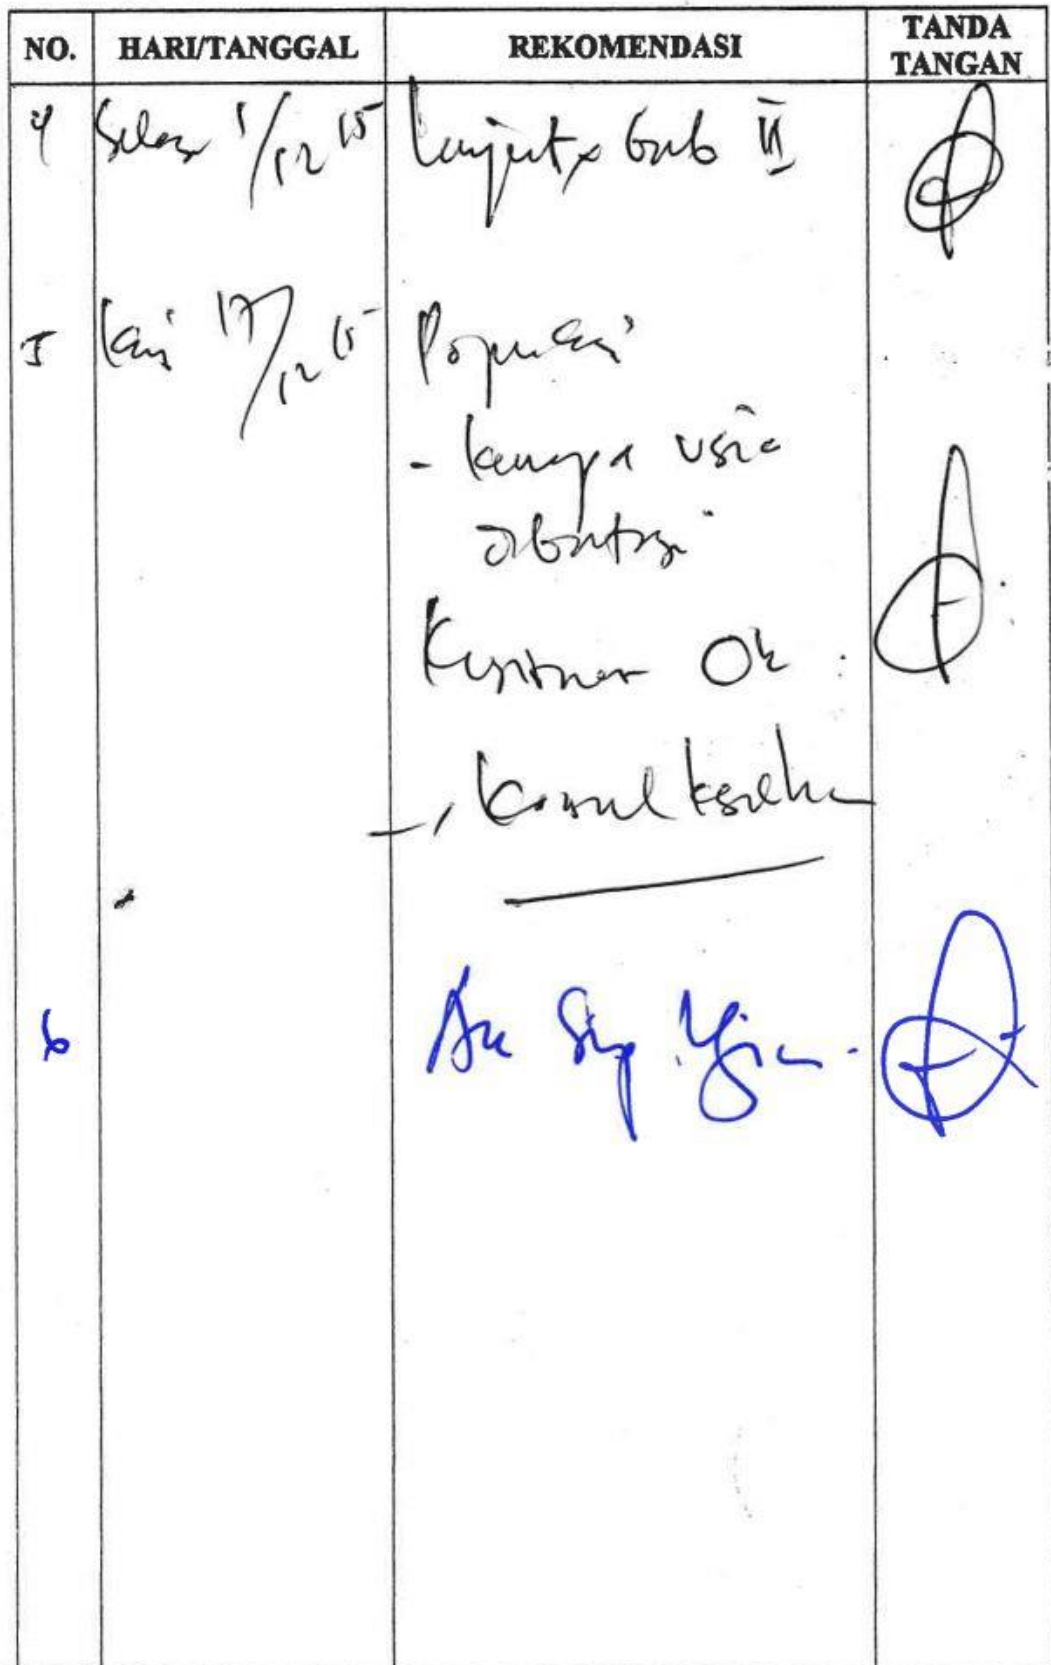 NO. HARI/TANGGAL REKOMENDASI TANDA TANGAN
4 Selasa 1/12 15 Lanjutkan Bab II
5 Kamis 17/12 15 Populasi
- kenapa usia
dibatasi
Kuisioner Ok
Konsul keseluruhan
6 Acc Siap Ujian.